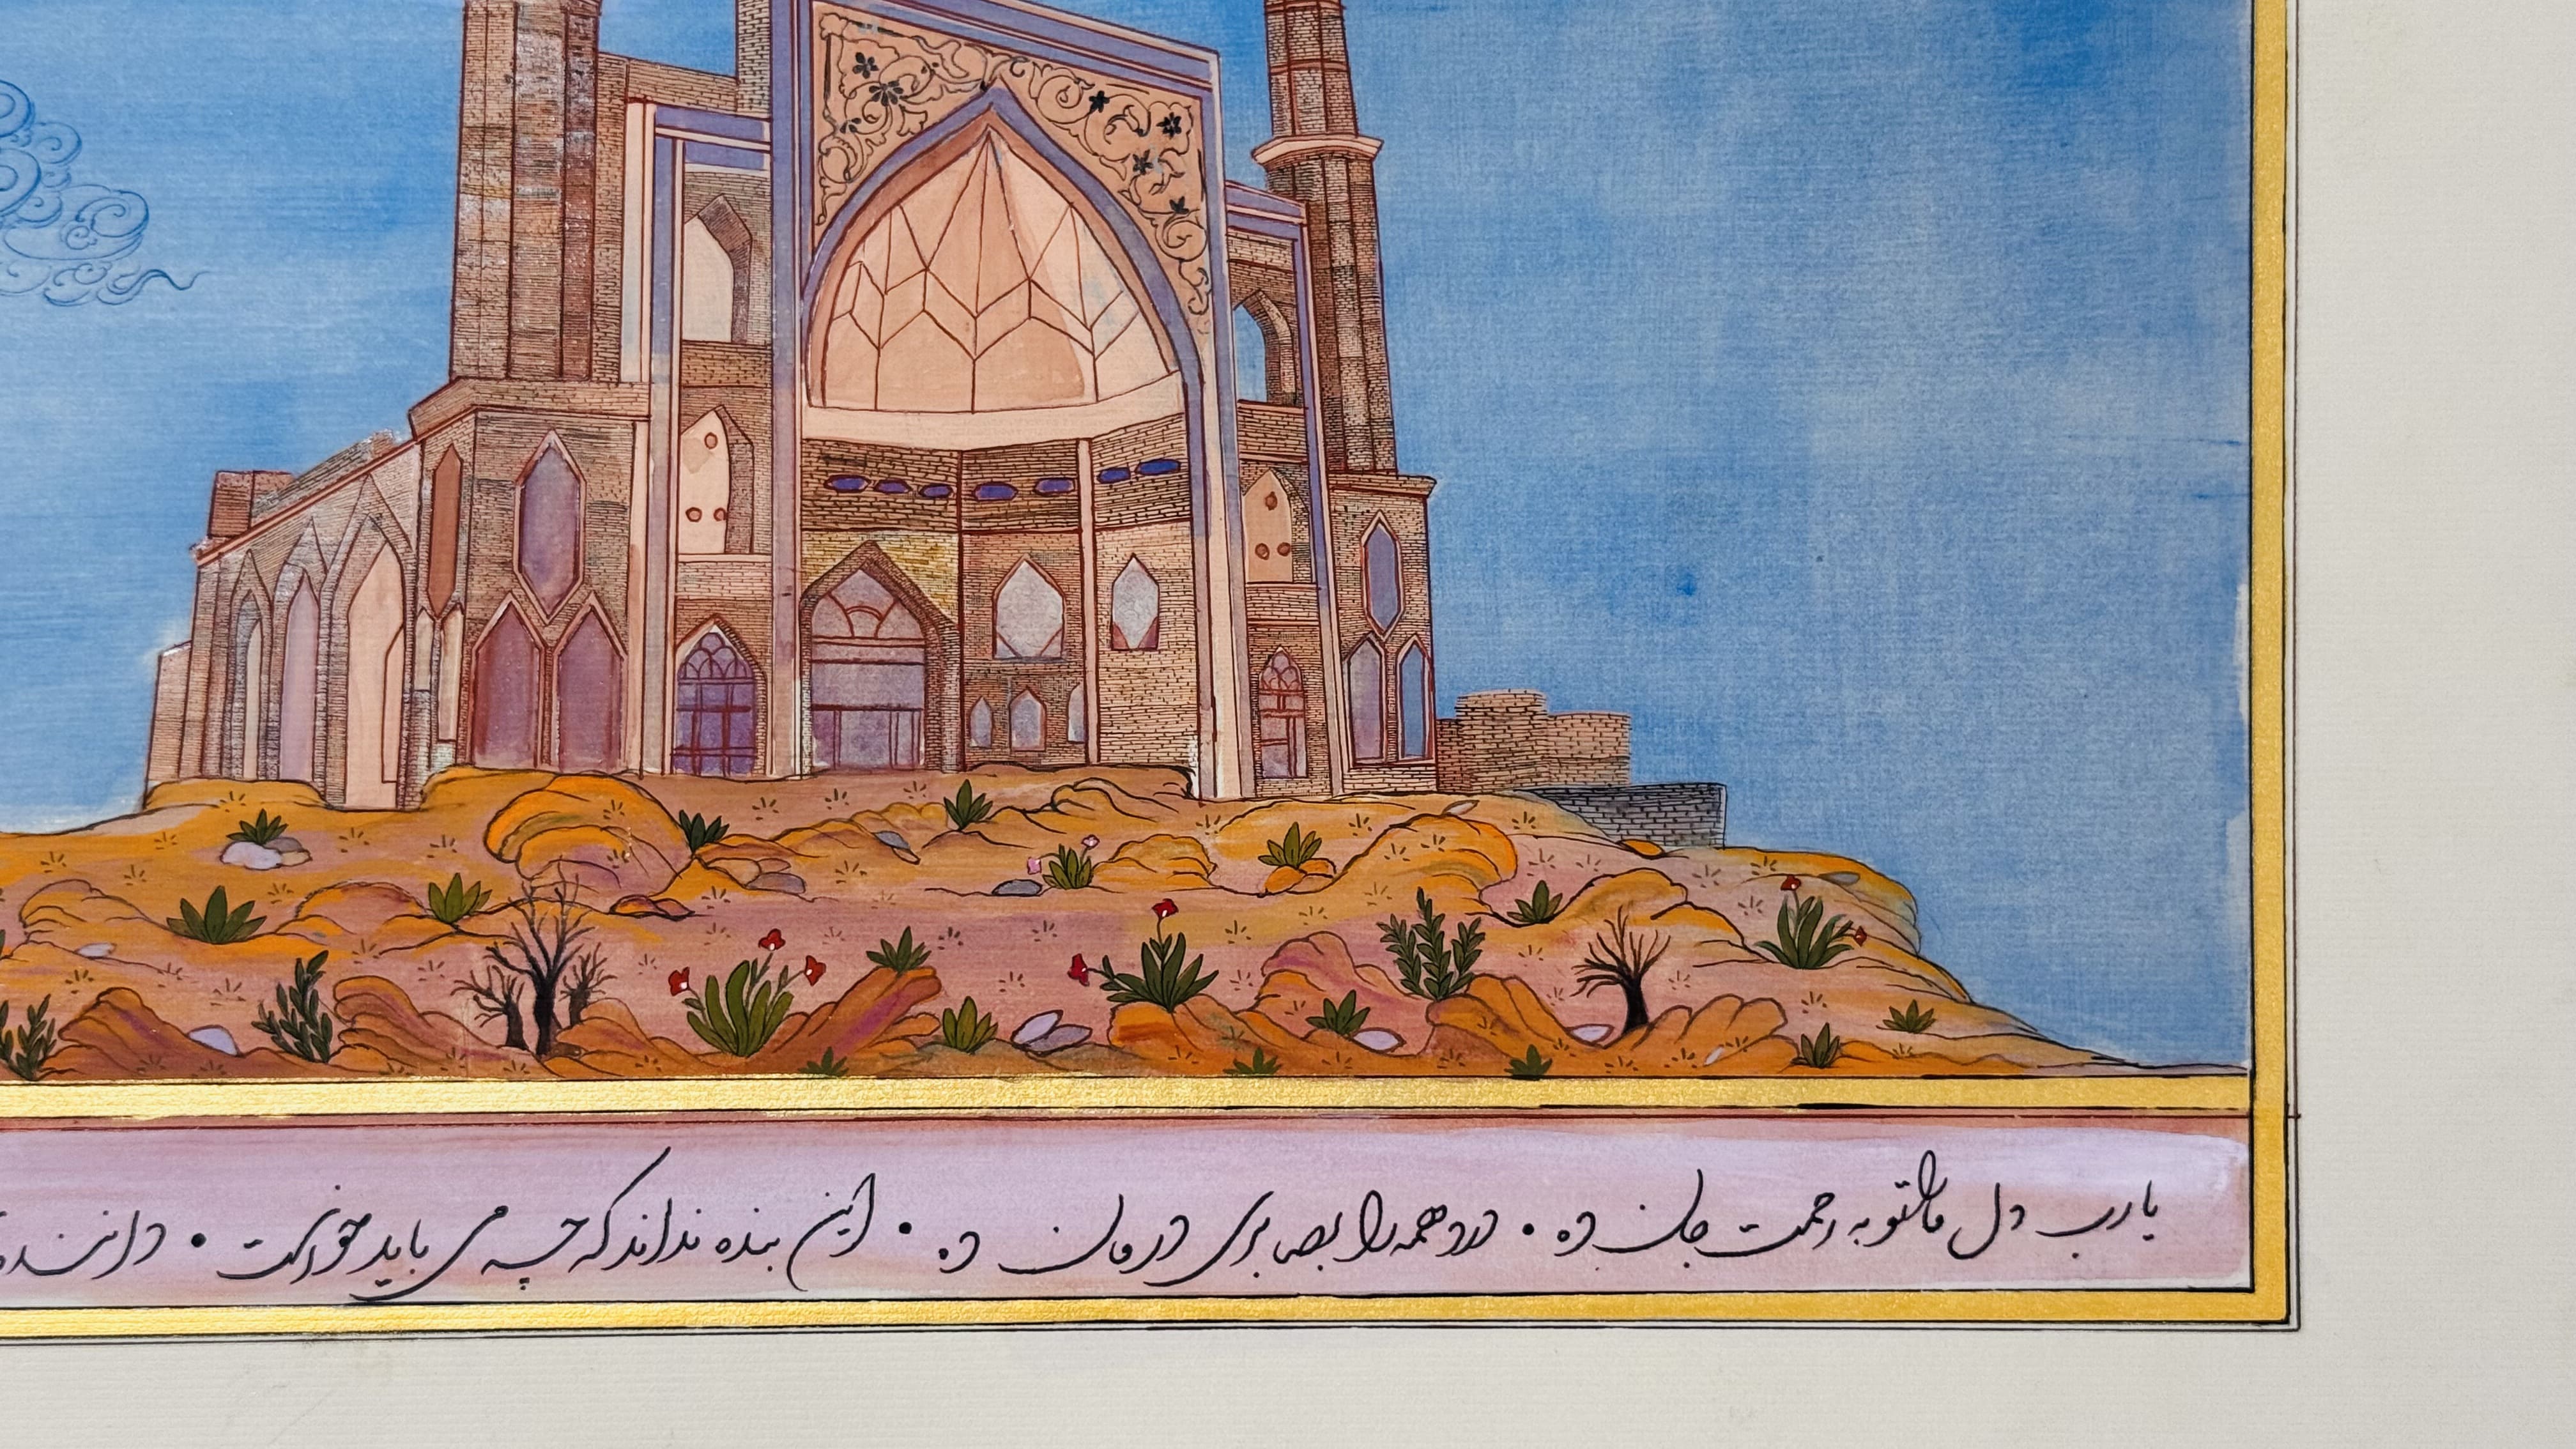 یارب دل ما را تو به رحمت جان ده • درد همه را بصابری درمان ده • این بنده نداند که چه می باید خواست • داننده